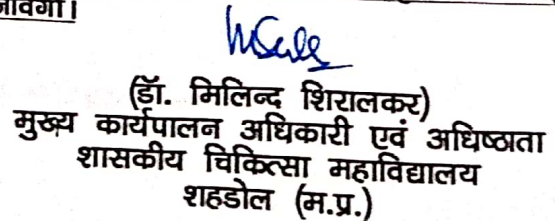 (डॉ. मिलिन्द शिरालकर)
मुख्य कार्यपालन अधिकारी एवं अधिष्ठाता
शासकीय चिकित्सा महाविद्यालय
शहडोल (म.प्र.)